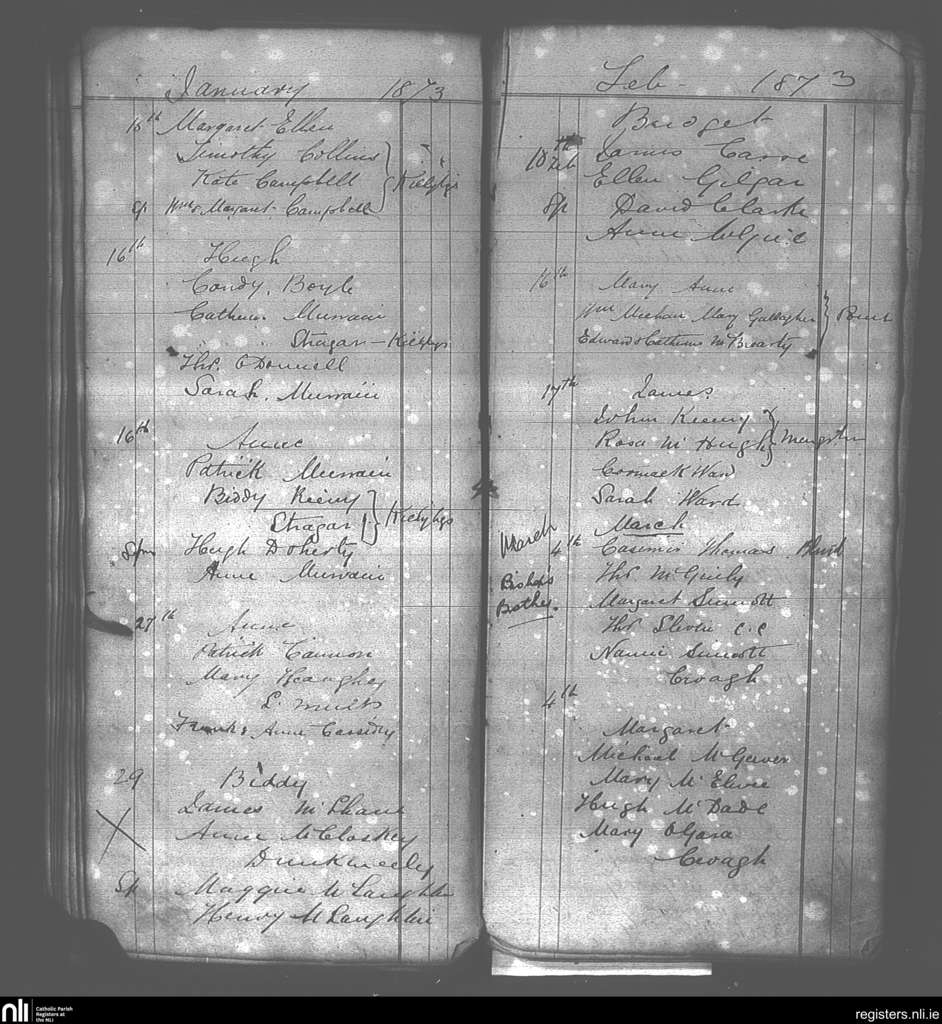 January 1873
16th Margaret Ellen
Timothy Collins
Kate Campbell
Sp Wm & Margaret Campbell
16th Hugh
Condy Boyle
Cathern
Stragar -
Ths. O'Donnell
Sarah
16th Anne
Patrick
Biddy Kieeny
Stragar
Spns Hugh Doherty
Anne
27th Anne
Patrick Cannon
Mary Haughey
Frank & Anne Cassidy
29 Biddy
James McShane
Anne McCloskey
Drunkineely
Sp Maggie McLaughlin
Henry McLaughlin
Feb - 1873
Bridget
10th Feb James
Ellen Gilgar
Sp David Clarke
Anne
16th Mary Anne
Wm Meehan Mary Gallagher
Edward & Cathern McBrearty
17th James
John Kieeny
Rosa McHugh
Cormack Ward
Sarah Ward
March
March 4th Casimir Thomas
Bishop's Ths McGinly
Brother. Margaret Sinnott
Ths Slevin C.C
Nannie Sinnott
Croagh
4th
Margaret
Michael McGeever
Mary
Hugh McDade
Mary O'Gara
Croagh
nli Catholic Parish
Registers at
the NLI
registers.nli.ie